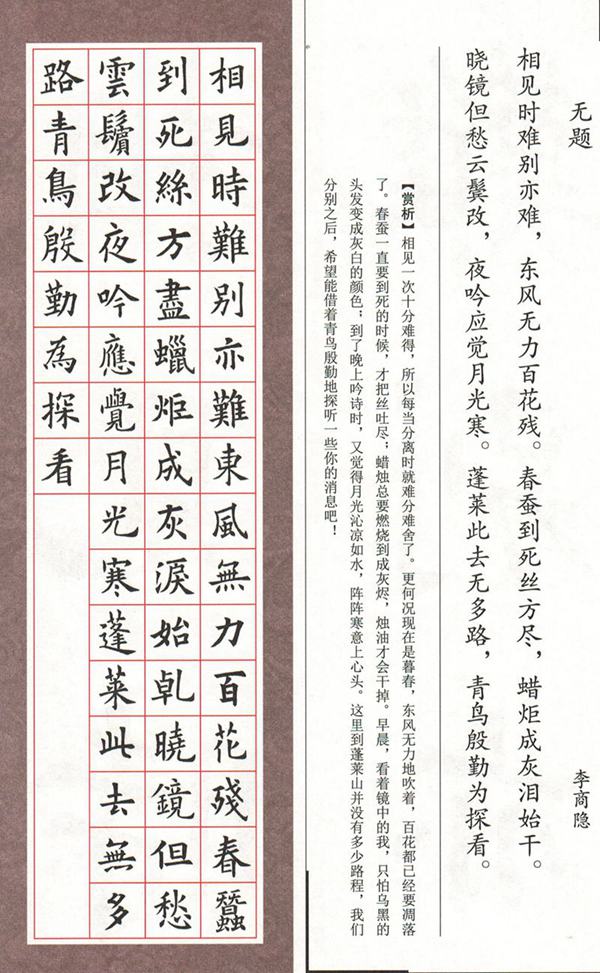 无题
李商隐
相见时难别亦难，东风无力百花残。春蚕到死丝方尽，蜡炬成灰泪始干。
晓镜但愁云鬓改，夜吟应觉月光寒。蓬莱此去无多路，青鸟殷勤为探看。
【赏析】相见一次十分难得，所以每当分离时就难分难舍了。更何况现在是暮春，东风无力地吹着，百花都已经要凋落
了。春蚕一直要到死的时候，才把丝吐尽；蜡烛总要燃烧到成灰烬，烛油才会干掉。早晨，看着镜中的我，只怕乌黑的
头发变成灰白的颜色；到了晚上吟诗时，又觉得月光沁凉如水，阵阵寒意上心头。这里到蓬莱山并没有多少路程，我们
分别之后，希望能借着青鸟殷勤地探听一些你的消息吧！
相見時難別亦難東風無力百花殘春蠶
到死絲方盡蠟炬成灰淚始乹曉鏡但愁
雲鬢改夜吟應覺月光寒蓬萊此去無多
路青鳥殷勤為探看